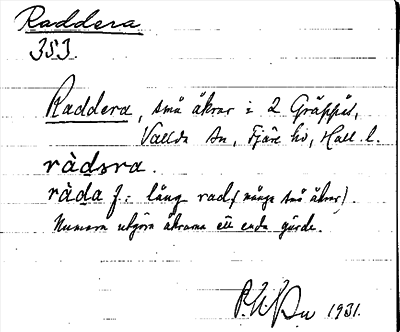 Raddera
353
Raddera, små åkrar i 2 Gräppås,
Vallda sn, Fjäre hd, Hall. l.
ràdəra.
ràda f.: lång rad (många små åkrar).
Numera utgöra åkrarna ett enda gärde.
1931.